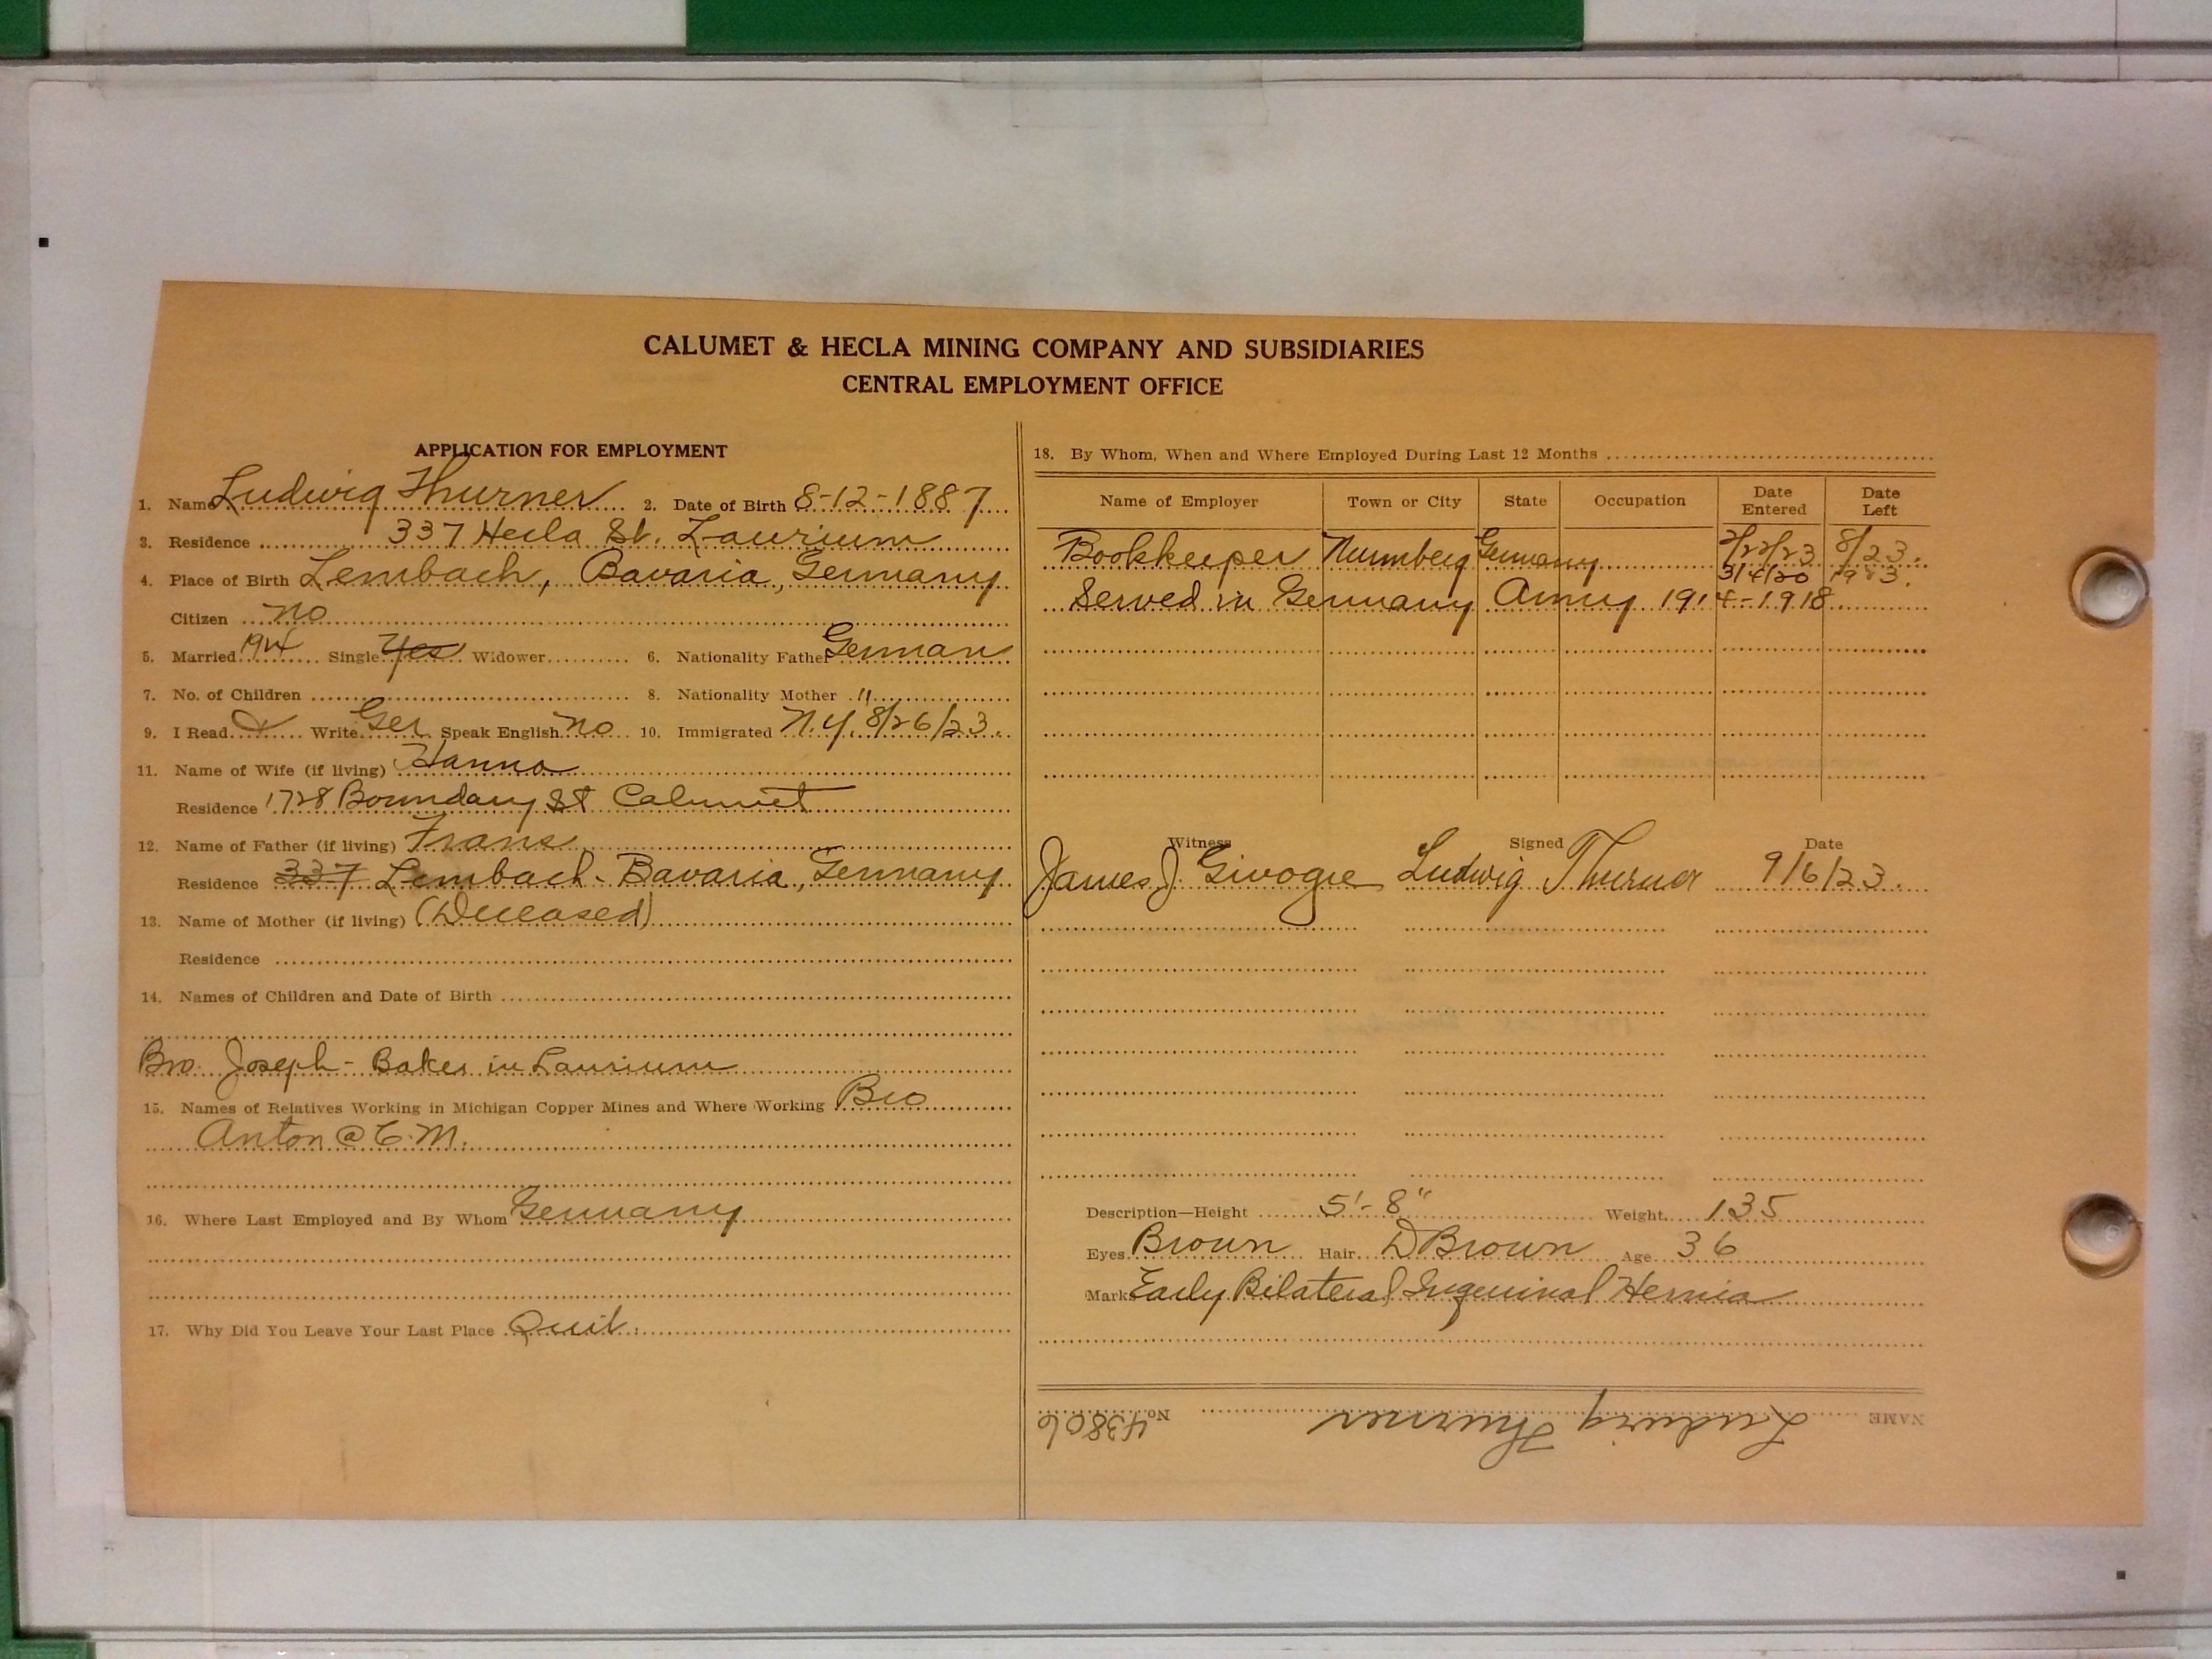 CALUMET & HECLA MINING COMPANY AND SUBSIDIARIES
CENTRAL EMPLOYMENT OFFICE
APPLICATION FOR EMPLOYMENT
1. Name Ludwig Thurner 2. Date of Birth 8-12-1887
3. Residence 337 Hecla St. Laurium
4. Place of Birth Lembach, Bavaria, Germany
Citizen no
5. Married Single Yes Widower 6. Nationality Father German
7. No. of Children 8. Nationality Mother "
9. I Read Write Ger Speak English no 10. Immigrated N.Y. 8/26/23.
11. Name of Wife (if living) Hanna
Residence 1728 Boundary St Calumet
12. Name of Father (if living) Frans
Residence 337 Lembach - Bavaria, Germany
13. Name of Mother (if living) (Deceased)
Residence
14. Names of Children and Date of Birth
Bro. Joseph - Baker in Laurium
15. Names of Relatives Working in Michigan Copper Mines and Where Working Bro
Anton @ C.M.
16. Where Last Employed and By Whom Germany
17. Why Did You Leave Your Last Place Quit.
18. By Whom, When and Where Employed During Last 12 Months
Name of Employer Town or City State Occupation Date Entered Date Left
Bookkeeper Nurnberg Germany 2/22/23 8/23.
3/4/20
Served in Germany Army 1914-1918
Witness Signed Date
James J. Ludwig Thurner 9/6/23.
Description—Height 5'-8" Weight 135
Eyes Brown Hair D Brown Age 36
Marks Early Bilateral Inguinal Hernia
NAME Ludwig Thurner No. 43806